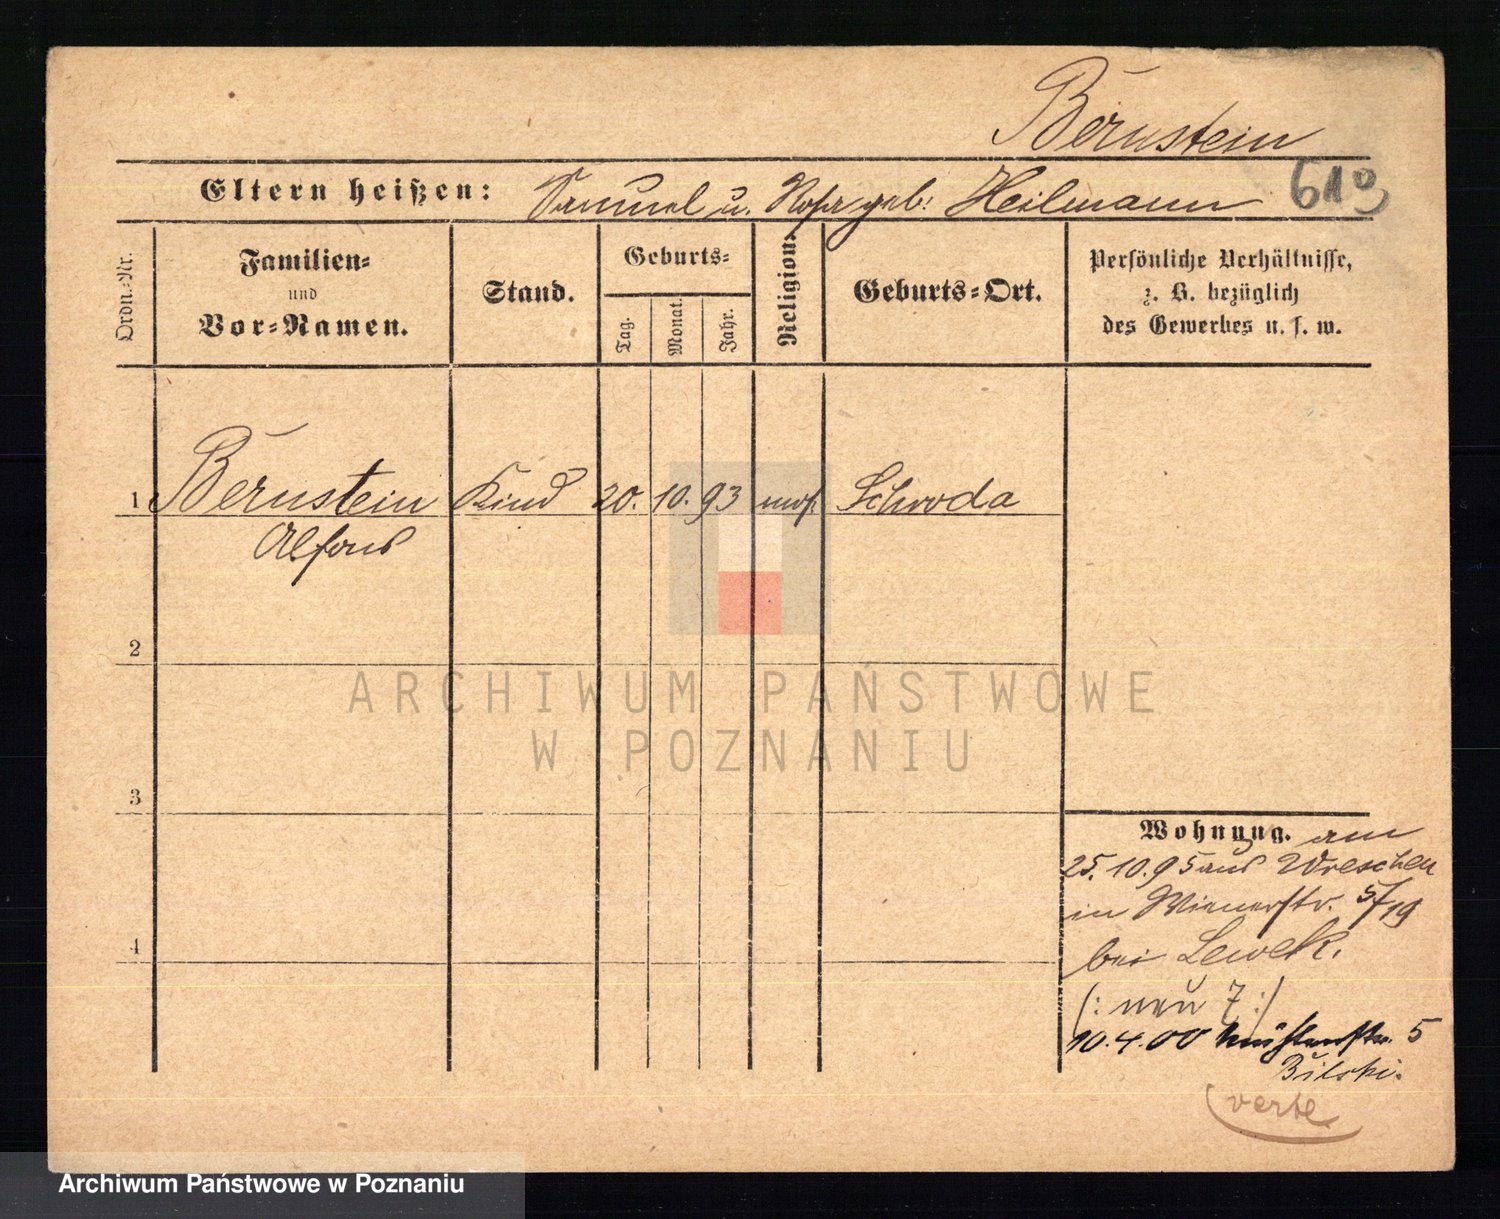 Bernstein
Eltern heißen: Samuel u. Rosa geb: Heilmann
Ordn.=Nr.
Familien=
und
Vor=Namen.
Stand.
Geburts=
Tag.
Monat.
Jahr.
Religion.
Geburts=Ort.
Persönliche Verhältnisse,
z. B. bezüglich
des Gewerbes u. s. w.
1 Bernstein Kind 20. 10. 93 mos. Schroda
Alfons
2
ARCHIWUM PAŃSTWOWE
W POZNANIU
3
4
Wohnung. am
25. 10. 95 aus Wreschen
in Wienerstr. 5/19
bei Lewek.
(: neu 7 :)
10. 4. 00 Mühlenstr. 5
Bilski.
verte
Archiwum Państwowe w Poznaniu